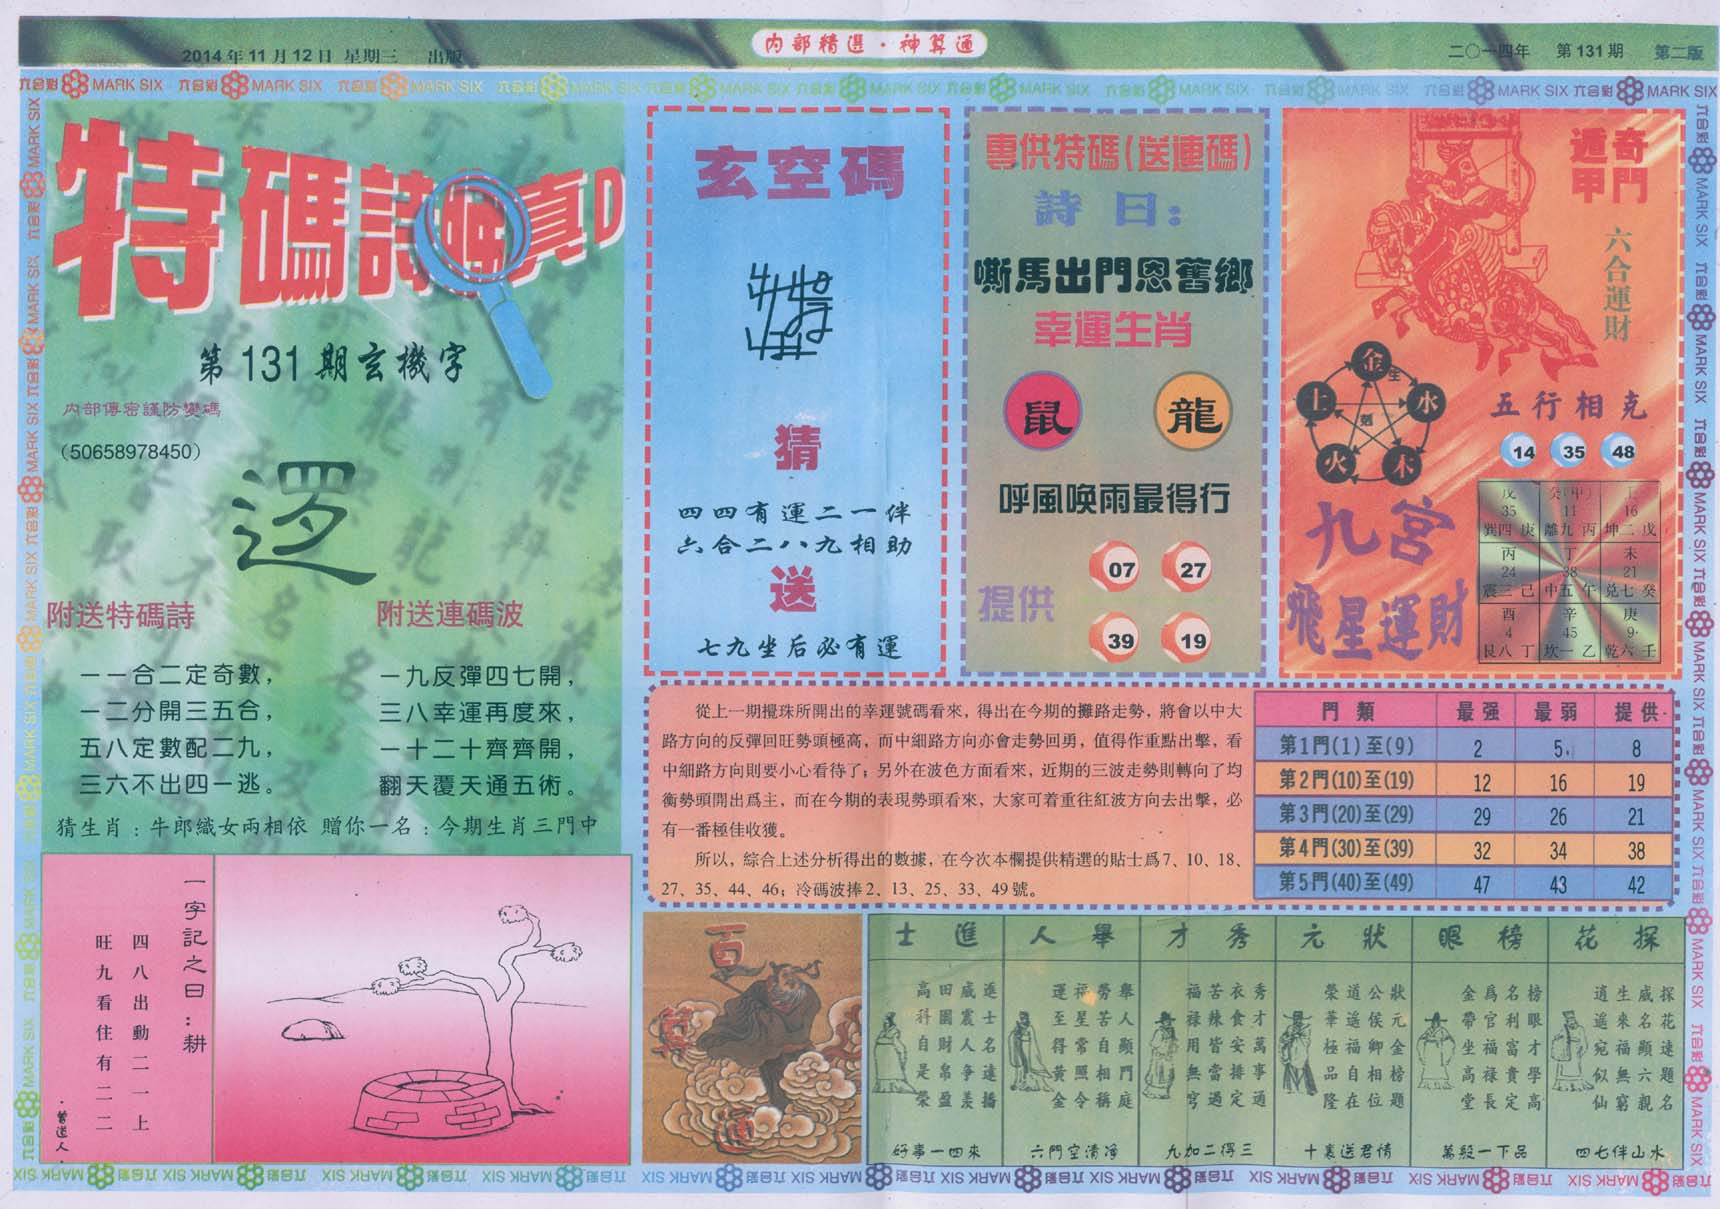 2014年11月12日 星期三 出版
内部精選·神算通
二〇一四年 第131期 第二版
六合彩 MARK SIX
特碼詩
真D
第131期玄機字
内部傳密謹防變碼
(50658978450)
附送特碼詩
一一合二定奇數,
一二分開三五合,
五八定數配二九,
三六不出四一逃。
附送連碼波
一九反彈四七開,
三八幸運再度來,
一十二十齊齊開,
翻天覆天通五術。
猜生肖:牛郎織女兩相依 贈你一名:今期生肖三門中
一字記之曰:耕
四八出動二一上
旺九看住有二二
·曾道人·
玄空碼
猜
四四有運二一伴
六合二八九相助
送
七九坐后必有運
專供特碼(送連碼)
詩曰:
嘶馬出門恩舊鄉
幸運生肖
鼠 龍
呼風喚雨最得行
提供
07 27
39 19
奇門遁甲
六合運財
金 水 木 火 土
生
剋
五行相克
14 35 48
九宮
飛星運財
戊 癸(甲) 壬
35 11 16
巽四 庚 離九 丙 坤二 戊
丙 丁 未
24 38 21
震三 己 中五 午 兌七 癸
酉 辛 庚
4 45 9
艮八 丁 坎一 乙 乾六 壬
從上一期攪珠所開出的幸運號碼看來,得出在今期的攤路走勢,將會以中大
路方向的反彈回旺勢頭極高,而中細路方向亦會走勢回勇,值得作重點出擊,看
中細路方向則要小心看待了;另外在波色方面看來,近期的三波走勢則轉向了均
衡勢頭開出爲主,而在今期的表現勢頭看來,大家可着重往紅波方向去出擊,必
有一番極佳收獲。
所以,綜合上述分析得出的數據,在今次本欄提供精選的貼士爲7、10、18、
27、35、44、46;冷碼波捧2、13、25、33、49號。
門類 最强 最弱 提供
第1門(1)至(9) 2 5 8
第2門(10)至(19) 12 16 19
第3門(20)至(29) 29 26 21
第4門(30)至(39) 32 34 38
第5門(40)至(49) 47 43 42
百
探花
探花速題名
威名顯六親
生來福無窮
逍遙宛似仙
四七伴山水
榜眼
榜眼才學高
名利富貴定
爲官福祿長
金帶坐高堂
萬綫一下品
狀元
狀元金榜題
公侯卿相位
道遙福自在
榮華極品隆
十裏送君情
秀才
秀才萬事通
衣食安排定
苦辣皆當過
福祿用無窮
九加二得三
舉人
舉人顯門庭
勞苦自相稱
福星常照令
運至得黃金
六門空清淨
進士
進士名達播
威震人爭羨
田園財帛盈
高科自是榮
好事一四來